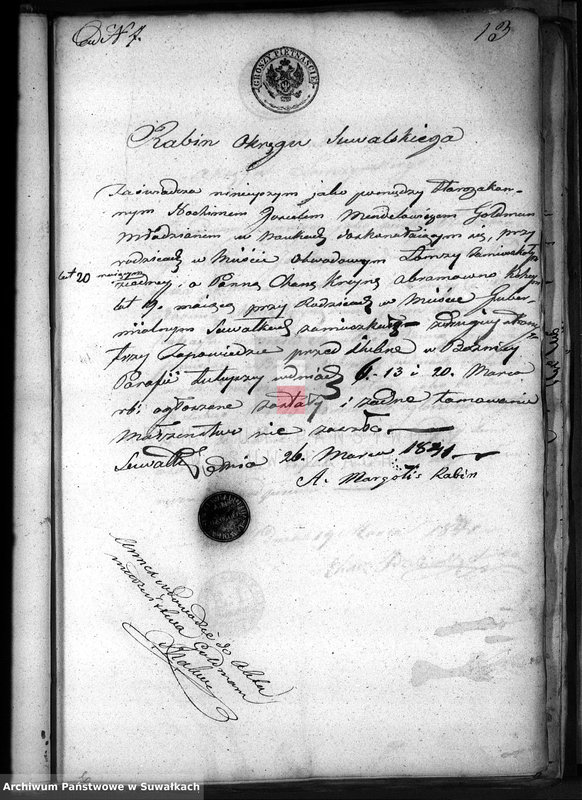 Ad N 7.
13
GROSZY PIĘTNAŚCIE
Rabin Okręgu Suwalskiego
Zaświadcza niniejszym jako pomiędzy Starozakon-
nym Nochimem Joselem Mendelowiczem Goldman
Młodzianem w Naukach doskonalącym się, przy
rodzicach w Mieście Obwodowym Łomzy zamieszkały
lat 20 mającym
z jedney, a Panną Chaną Kreyną Abramowną
lat 19. maiącą przy Rodzicach w Mieście Guber-
nijalnym Suwałkach zamieszkałą z drugiey strony
trzy Zapowiedzie przed ślubne w Bożnicy
Parafii tutejszy w dniach 6. 13 i 20. Marca
rb: ogłoszone zostały i żadne tamowanie
Małżeństwa nie zaszło
Suwałki dnia 26. Marca 1841
A. Margolis Rabin
do Aktu
małżeństwa Goldman
Archiwum Państwowe w Suwałkach